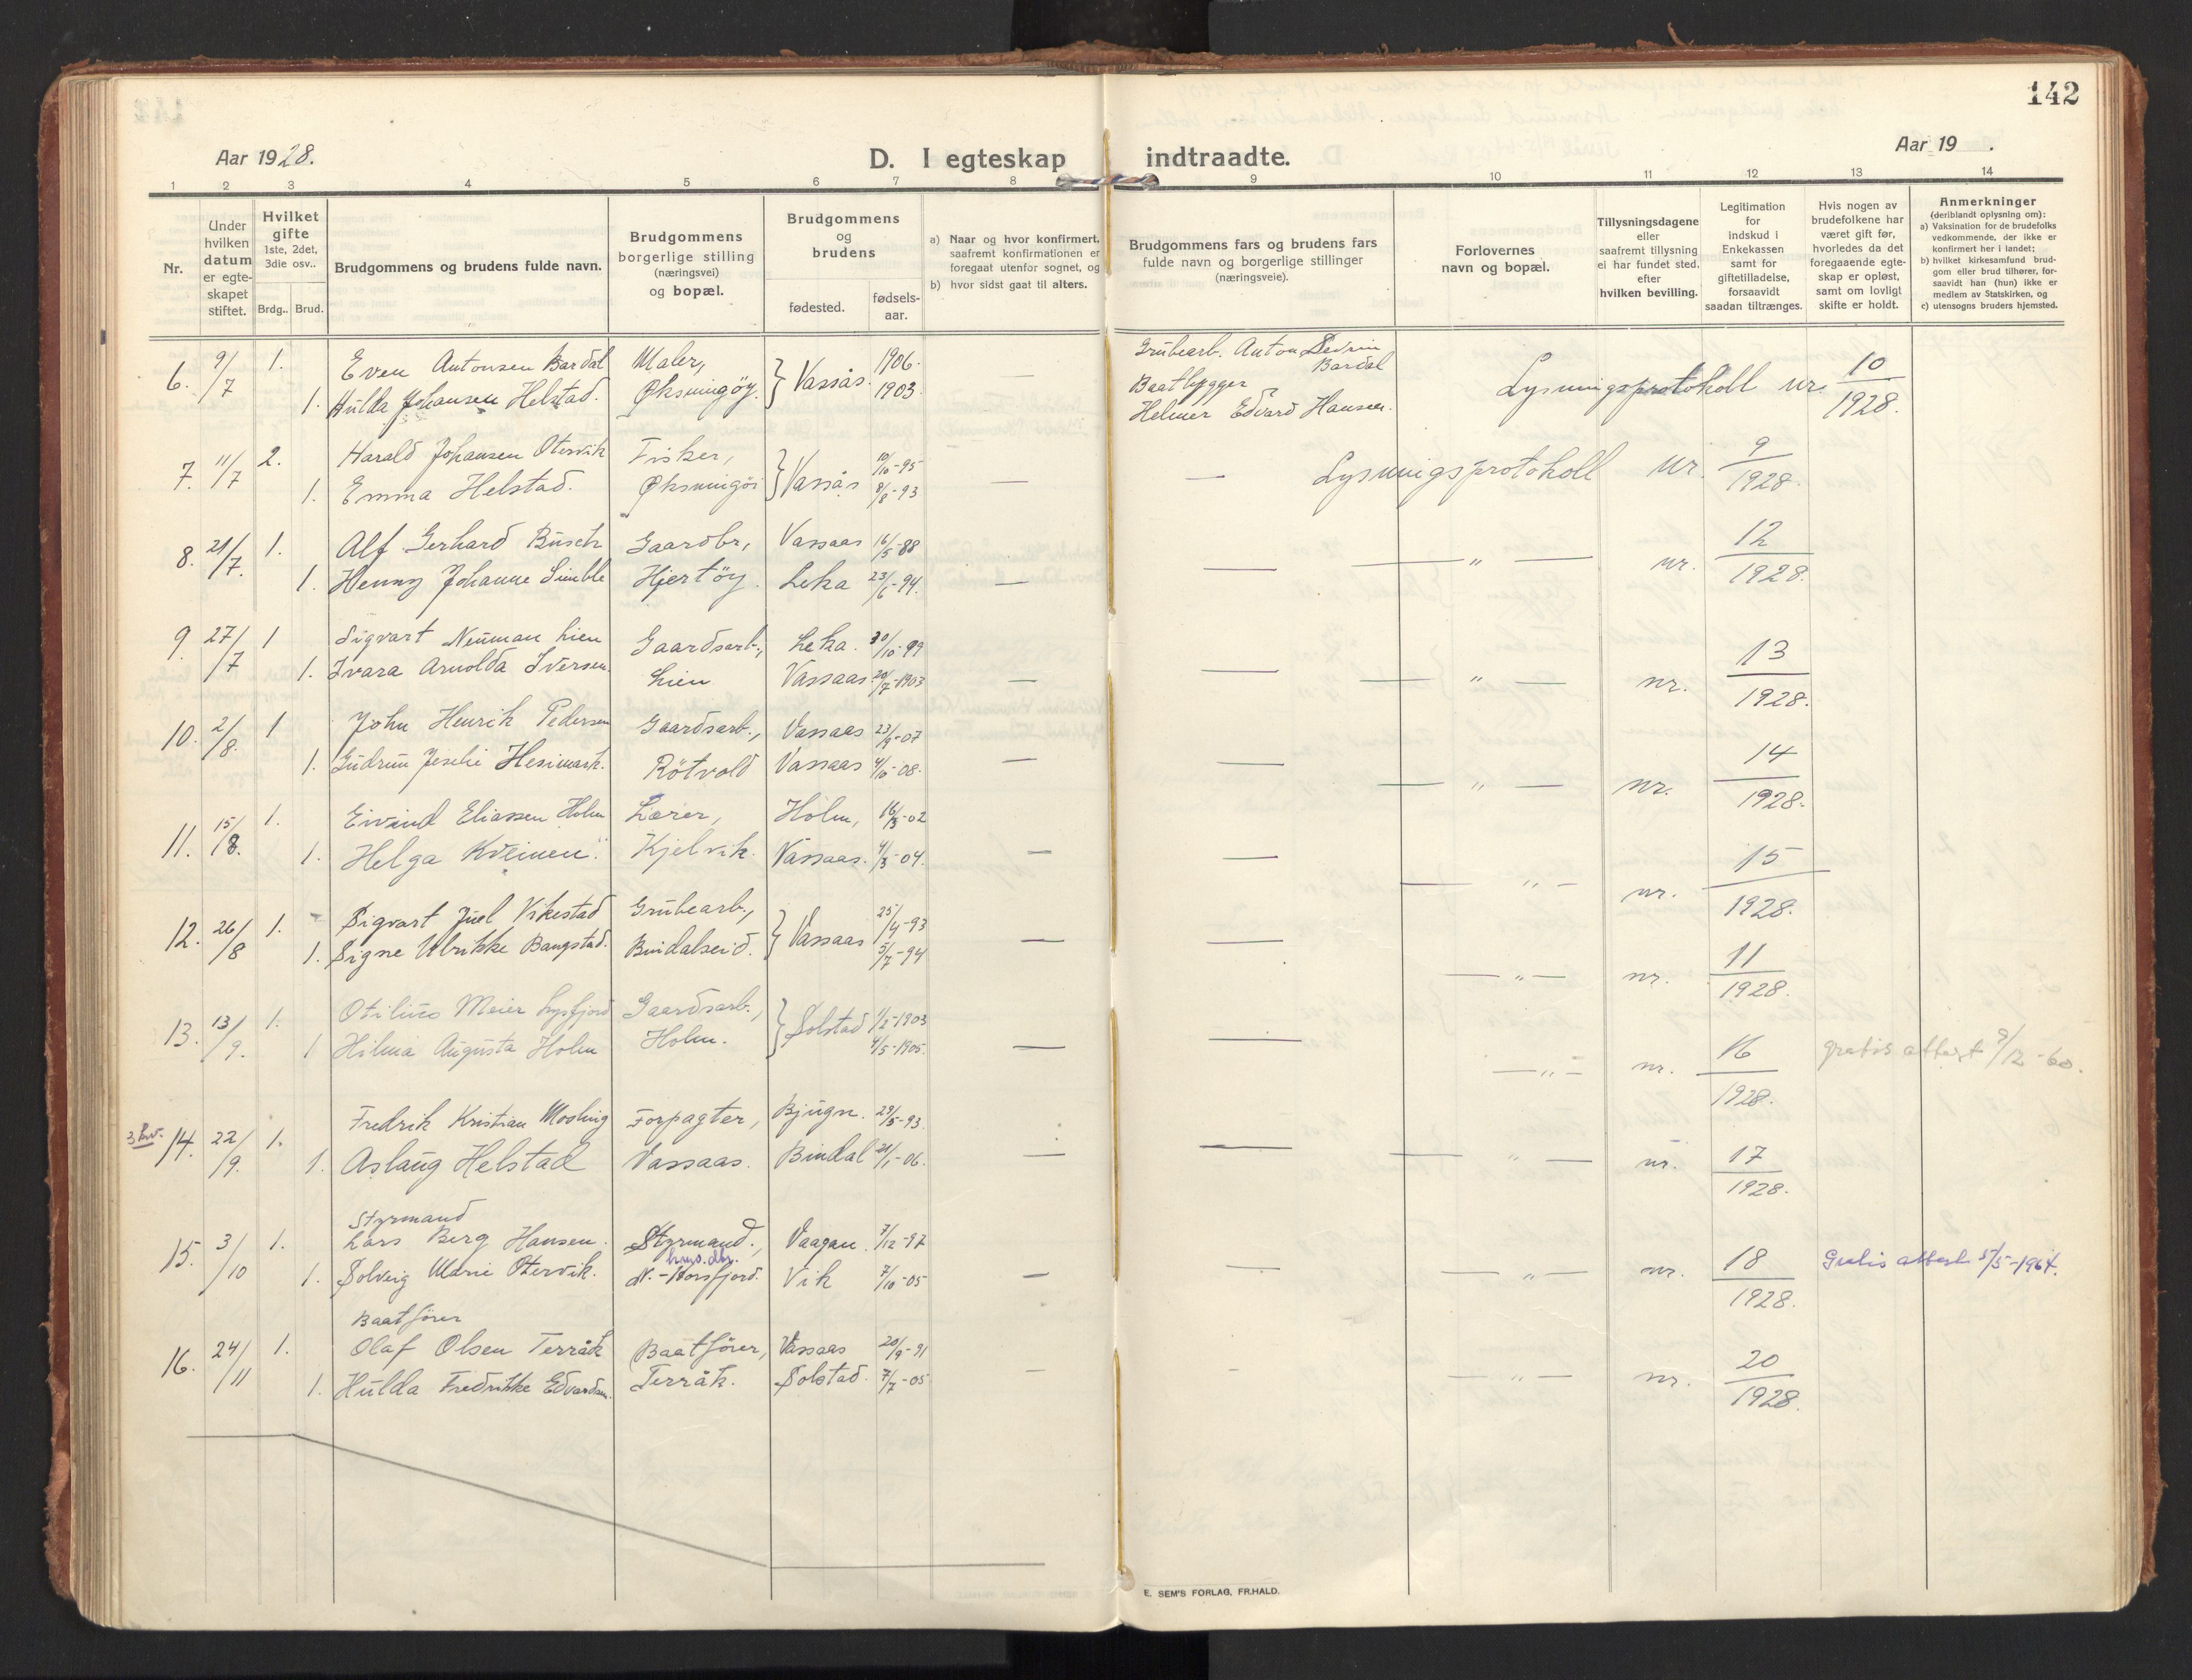 142
Aar 1928.
D. I egteskap indtraadte.
Aar 19 .
1 2 3 4 5 6 7 8 9 10 11 12 13 14
Nr.
Under hvilken datum er egte-skapet stiftet.
Hvilket gifte 1ste, 2det, 3die osv..
Brdg.. Brud.
Brudgommens og brudens fulde navn.
Brudgommens borgerlige stilling (næringsvei) og bopæl.
Brudgommens og brudens
fødested. fødsels-aar.
a) Naar og hvor konfirmert, saafremt konfirmationen er foregaat utenfor sognet, og
b) hvor sidst gaat til alters.
Brudgommens fars og brudens fars fulde navn og borgerlige stillinger (næringsveie).
Forlovernes navn og bopæl.
Tillysningsdagene eller saafremt tillysning ei har fundet sted, efter hvilken bevilling.
Legitimation for indskud i Enkekassen samt for giftetilladelse, forsaavidt saadan tiltrænges.
Hvis nogen av brudefolkene har været gift før, hvorledes da det foregaaende egte-skap er opløst, samt om lovligt skifte er holdt.
Anmerkninger (deriblandt oplysning om):
a) Vaksination for de brudefolks vedkommende, der ikke er konfirmert her i landet;
b) hvilket kirkesamfund brud-gom eller brud tilhører, for-saavidt han (hun) ikke er medlem av Statskirken, og
c) utensogns bruders hjemsted.
6. 9/7 1. Even Antonsen Bardal Maler, } Vassås. 1906. — Grubearb. Anton Bardal
1. Hulda Johansen Helstad. Øksningøy. 1903. Baatbygger Helmer Edvard Hansen. Lysningsprotokoll nr. 10/1928.
7. 11/7 2. Harald Johansen Otervik Fisker, } Vassås 10/10-95
1. Emma Helstad. Øksningöi 8/8-93 — — Lysningsprotokoll nr. 9/1928.
8. 21/7. 1. Alf Gerhard Busch Gaardbr, Vassaas 16/5-88
1. Henny Johanne Simble Hjertöy. Leka 23/6-94. — — — " — nr. 12/1928.
9. 27/7 1 Sigvart Neuman Lien Gaardsarb., Leka. 30/10-99
1. Ivara Arnolda Iversen. Lien Vassaas. 20/7-1903 — — — " — nr. 13/1928.
10. 2/8. 1 John Henrik Pedersen Gaardsarb., Vassaas 23/9-07
1. Gudrun Heimark. Rötvold Vassaas 4/10-08. — — — " — nr. 14/1928.
11. 15/8. 1. Eivind Eliassen Holm Lærer, Holm, 16/3-02
1. Helga Kveinen. Kjelvik. Vassaas. 4/3-04. — — — " — nr. 15/1928.
12. 26/8 1. Sigvart Juel Vikestad Grubearb., } Vassaas 25/4-93
1. Signe Ulrikke Bangstad. Bindalseid. 5/7-94 — — — " — nr. 11/1928.
13. 13/9. 1. Otilius Meier Lysfjord Gaardsarb., } Solstad 1/2-1903
1 Hilma Augusta Holm Holm. 4/5-1905. — — — " — nr. 16/1928. gratis attest 9/12-60.
14. 22/9. 1. Fredrik Kristian Forpagter, Bjugn. 29/5-93
1. Aslaug Helstad Vassaas. Bindal 21/1-06. — — — " — nr. 17/1928.
Styrmand
15. 3/10 1. Lars Berg Hansen. Styrmand., Vaagan. 7/12-97
1. Solveig Marie Otervik. N.-Horsfjord. Vik 7/10-05 — — — " — nr. 18/1928. Gratis attest 5/5-1964.
Baatförer
16. 24/11 1. Olaf Olsen Terråk Baatförer, Vassaas 20/9-91
1. Hulda Fredrikke Edvardsen. Terråk. Solstad. 7/7-05 — - — " — nr. 20/1928.
E. SEM'S FORLAG, FR.HALD.